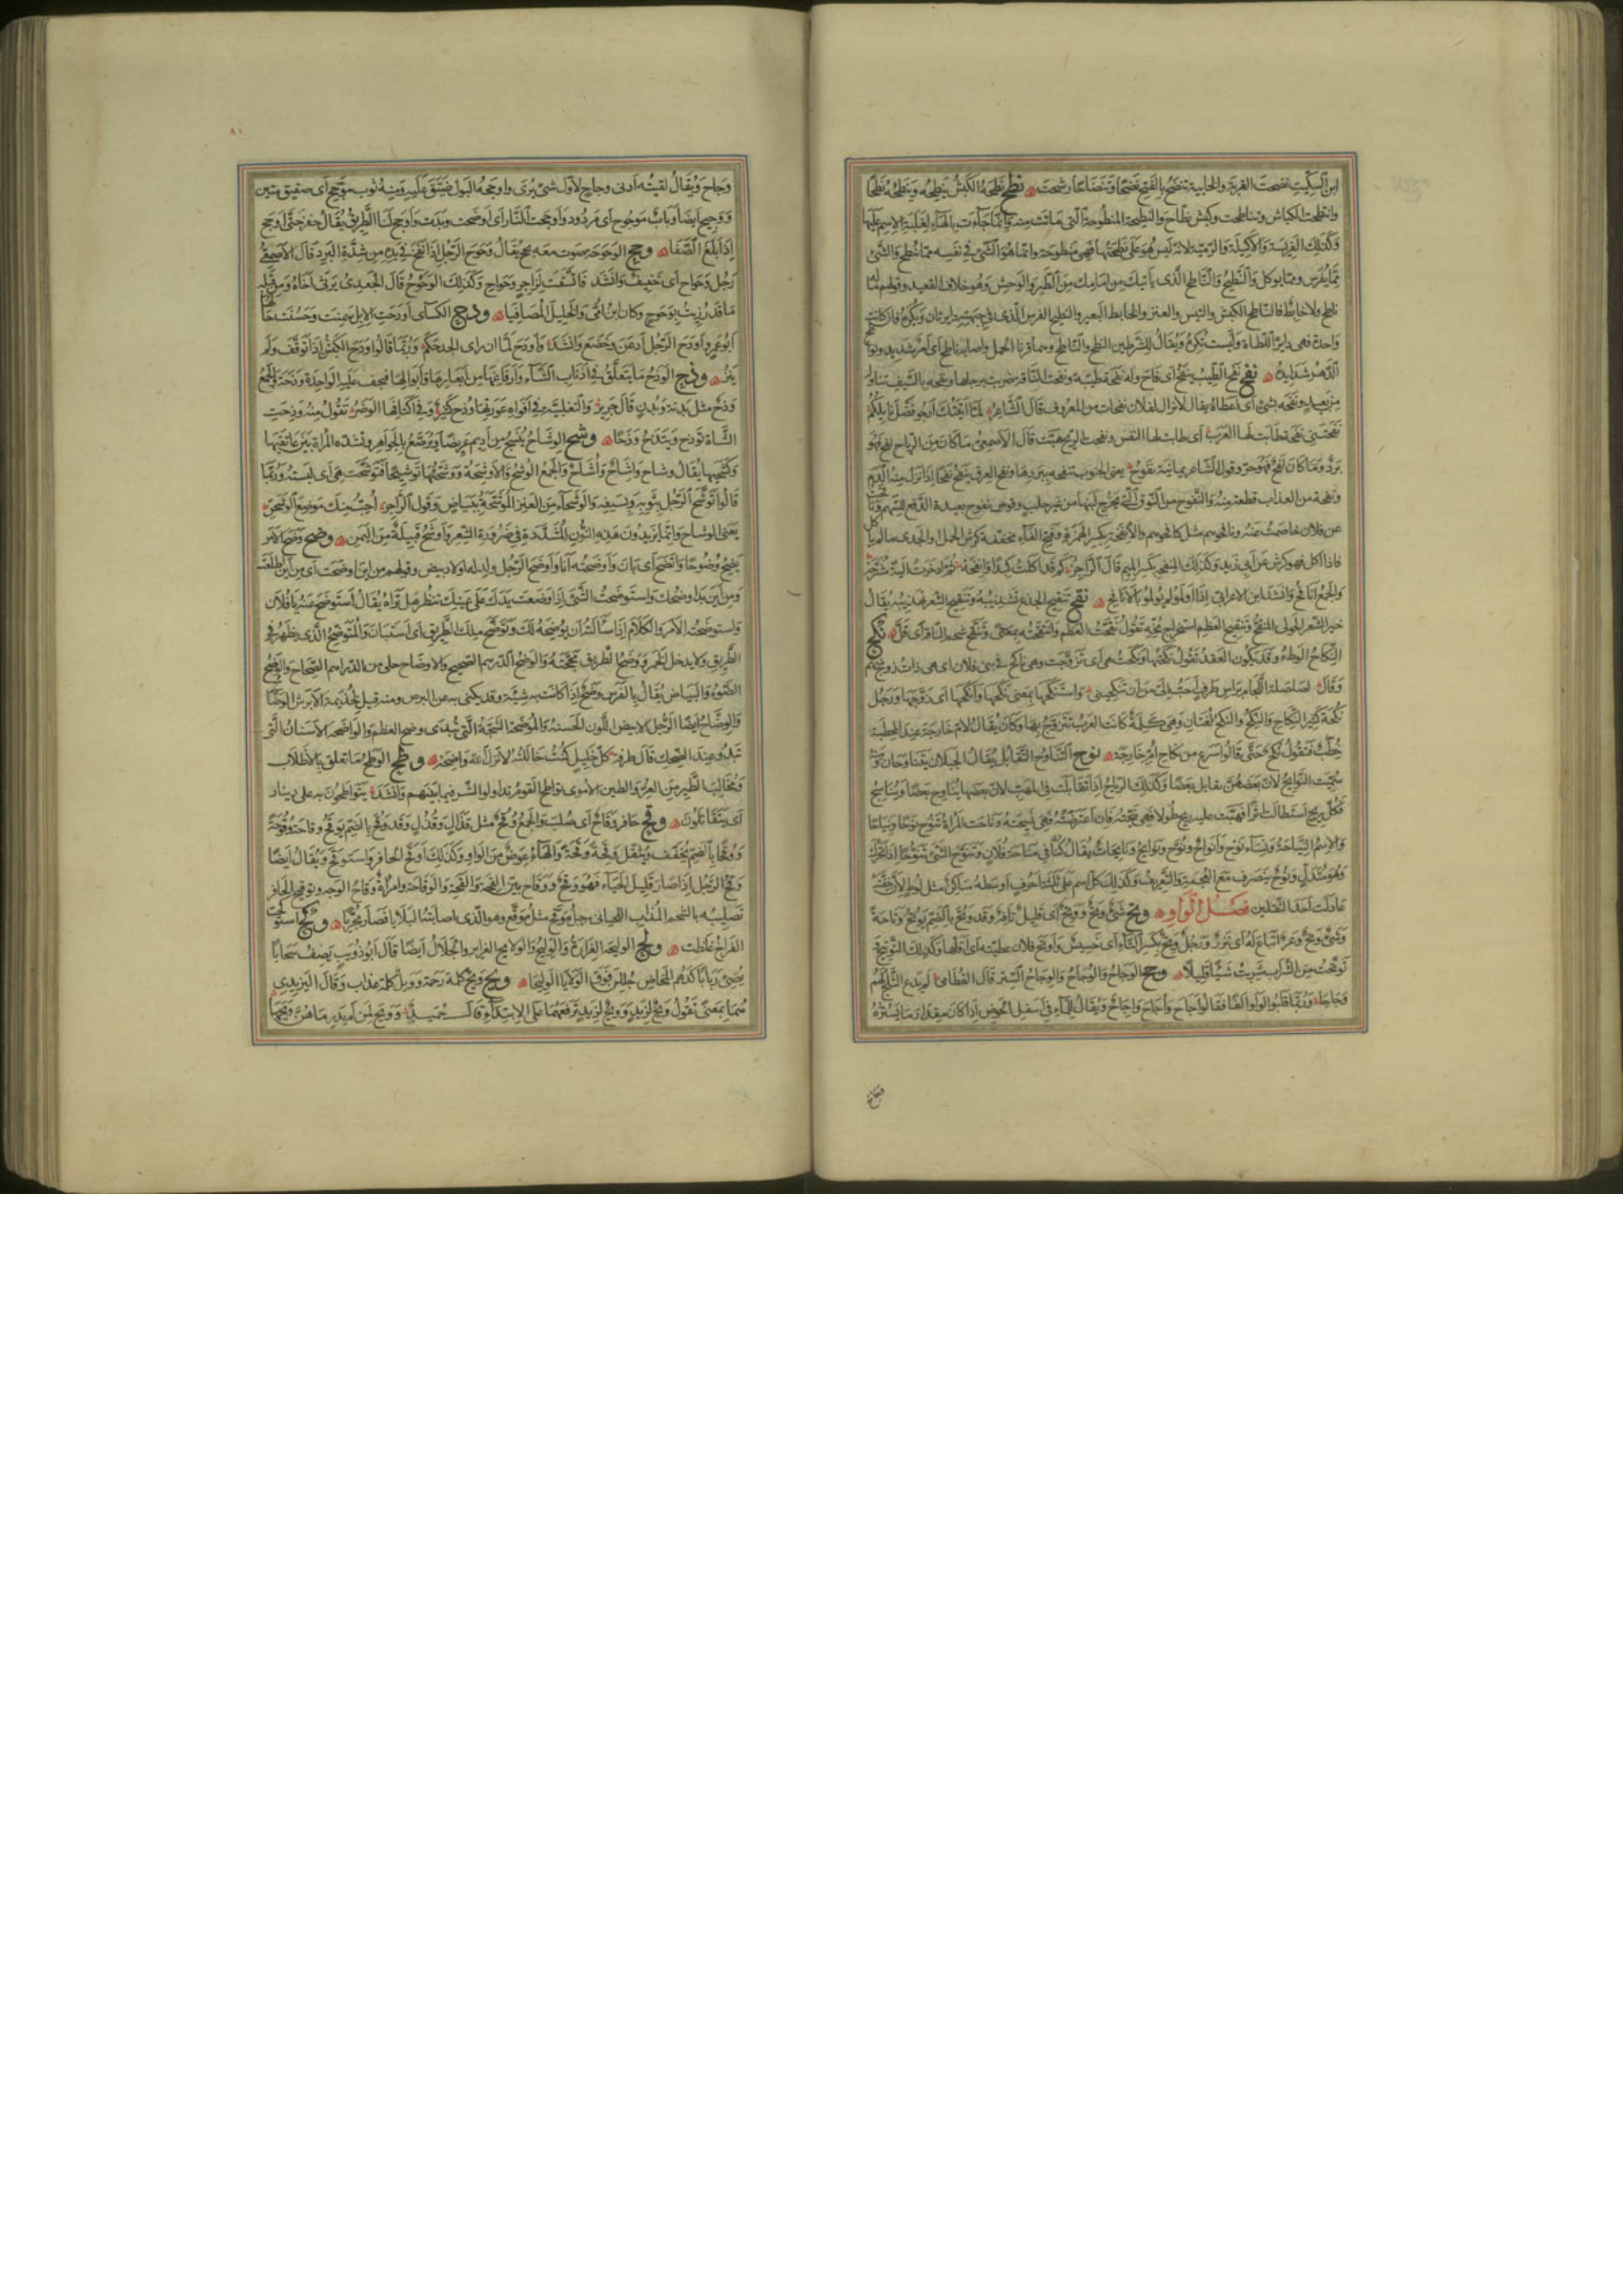 ابن السكيت نضحت القربة والخابية تنضح بالفتح نضحا وتنضاحا رشحت نطح نطحه الكبش ينطحه وينطحه نطحا
وانتطحت الكباش وتناطحت وكبش نطاح والنطيحة المنطوحة التي ماتت منه وانما جاءت بالهاء لغلبة الاسم عليها
وكذلك الفريسة والاكيلة والرمية لانه ليس هو على نطحتها فهي منطوحة وانما هو الشيء في نفسه مما ينطح والشيء
مما يفرس ومما يوكل والنطيح والناطح الذي ياتيك من امامك من الطير والوحش وهو خلاف القعيد وقولهم ما له
ناطح ولا خابط فالناطح الكبش والتيس والعنز والخابط البعير والنطيح الفرس الذي في جبهته دايرتان ويكره فان كانت
واحدة فهي داير اللطاة وليست تكره ويقال للشرطين النطح والناطح وهما قرنا الحمل واصابه ناطح اي امر شديد ونواطح
الدهر شدايده نفح نفح الطيب ينفح اي فاح وله نفحة طيبة ونفحت الناقة ضربت برجلها ونفحه بالسيف تناوله
من بعيد ونفحه بشيء اي اعطاه يقال لا تزال لفلان نفحات من المعروف قال الشاعر لما اتيتك ارجو فضل نايلكم
نفحتني نفحة طابت لها العرب اي طابت لها النفس ونفحت الريح هبت قال الاصمعي ما كان من الرياح نفح فهو
برد وما كان لفح فهو حر وقول الشاعر يمانية نفوح يعني الجنوب تنفحه ببردها ونفح العرق ينفح نفحا اذا نزل منه الدم
ونفحة من العذاب قطعة منه والنفوح من النوق التي يخرج لبنها من غير حلب وقوس نفوح بعيدة الدفع للسهم ونافحت
عن فلان خاصمت عنه ونافحوهم مثل كافحوهم والانفحة بكسر الهمزة وفتح الفاء مخففة كرش الحمل والجدي ما لم ياكل
فاذا اكل فهو كرش عن ابي زيد وكذلك المنفحة بكسر الميم قال الراجز كم قد اكلت كبدا وانفحه ثم ادخرت الية مشرحه
والجمع انافح وانشد ابن الاعرابي اذا اولموا لم يولموا بالانافح نقح تنقيح الجذع تشذيبه وتنقيح الشعر تهذيبه يقال
خير الشعر الحولي المنقح وتنقيح العظم استخراج مخه تقول نقحت العظم وانتقحته بمعنى وتنقح شحم الناقة اي قل نكح
النكاح الوطء وقد يكون العقد تقول نكحتها ونكحت هي اي تزوجت وهي ناكح في بني فلان اي هي ذات زوج منهم
وقال لصلصلة اللجام براس طرف احب الي من ان تنكحيني واستنكحها بمعنى نكحها وانكحها اي زوجها ورجل
نكحة كثير النكاح والنكح والنكح لغتان وهي كلمة كانت العرب تتزوج بها وكان يقال لام خارجة عند الخطبة
خطب فتقول نكح حتى قالوا اسرع من نكاح ام خارجة نوح التناوح التقابل يقال الجبلان يتناوحان ومنه
سميت النوايح لان بعضهن يقابل بعضا وكذلك الرياح اذا تقابلت في المهب لان بعضها يناوح بعضا ويناسح
فكل ريح استطالت اثرا فهبت عليه ريح طولا فهي نيحته فان اعترضته فهي نسيجته وناحت المراة تنوح نوحا ونياحا
والاسم النياحة ونساء نوح وانواح ونوح ونوايح ونايحات يقال كنا في مناحة فلان وتنوح الشيء تنوحا اذا تحرك
وهو متدل ونوح ينصرف مع العجمة والتعريف وكذلك كل اسم على ثلثة احرف اوسطه ساكن مثل لوط لان خفته
عادلت احد الثقلين فصل الواو وتح شيء وتح ووتح اي قليل تافه وقد وتح بالضم يوتح وتاحة
وشيء وتح وعر اتباع له اي نزر ورجل وتح بكسر التاء اي خسيس واوتح فلان عطيته اي اقلها وكذلك التوتيح
توتحت من الشراب شربت شيئا قليلا وجح الوجاح والوجاح والوجاح الستر قال القطامي لم يدع الثلج لهم
وجاحا وربما قلبوا الواو الفا فقالوا اجاح واجاح واجاح ويقال للماء في اسفل الحوض اذا كان مقدار ما يستره
وجاح
٨١
وجاح ويقال لقيته ادنى وجاح لاول شيء يرى واوجحه البول ضيق عليه ومنه ثوب موجح اي صفيق متين
ووجيح ايضا وباب موجوح اي مردود واوجحت النار اي اوضحت وبدت واوجح لنا الطريق يقال حفر حتى اوجح
اذا بلغ الصفا وحح الوحوحة صوت معه بحح يقال وحوح الرجل اذا نفخ في يده من شدة البرد قال الاصمعي
رجل وحواح اي خفيف وانشد وكذلك الوحوح قال الجعدي يرثي اخاه ومن قبله
ما قد رزيت بوحوح وكان ابن امي والخليل المصافيا ودح الكساي اودحت الابل سمنت وحسنت حالها
ابو عمرو اودح الرجل اذعن وخضع وانشد واودح لما ان راى الجد حكم وربما قالوا اودح الكبش اذا توقف ولم
ينز وذح الوذح ما يتعلق في اذناب الشاء وارفاغها من ابعارها وابوالها فيجف عليه الواحدة وذحة والجمع
وذح مثل بدنة وبدن قال جرير والتغلبية في افواه عورتها وذح كثير وفي اكتافها الوضر تقول منه وذحت
الشاة توذح وتيذح وذحا وشح الوشاح ينسج من اديم عريضا ويرصع بالجواهر وتشده المراة بين عاتقيها
وكشحيها يقال وشاح واشاح واشاح والجمع الوشح والاوشحة ووشحتها توشيحا فتوشحت هي اي لبسته وربما
قالوا توشح الرجل بثوبه وبسيفه والوشحاء من العنز الموشحة ببياض وقول الراجز احب منك موضع الوشحن
يعني الوشاح وانما يزيدون هذه النون المشددة في ضرورة الشعر واوشح قبيلة من اليمن وضح وضح الامر
يضح وضوحا واتضح اي بان واوضحته انا واوضح الرجل ولد له اولاد بيض وقولهم من اين اوضحت اي من اين طلعت
ومن اين بدا وضحك واستوضحت الشيء اذا وضعت يدك على عينيك تنظر هل تراه يقال استوضح عنه يا فلان
واستوضحت الامر والكلام اذا سالته ان يوضحه لك وتوضح ملك الطريق اي استبان والمتوضح الذي يظهر في
الطريق ولا يدخل الخمر ووضح الطريق محجته والوضح الدرهم الصحيح والاوضاح حلي من الدراهم الصحاح والوضح
الضوء والبياض يقال بالفرس وضح اذا كانت به شية وقد يكنى به عن البرص ومنه قيل لجذيمة الابرش الوضاح
والوضاح ايضا الرجل الابيض اللون الحسنه والموضحة الشجة التي تبدي وضح العظم والواضحة الاسنان التي
تبدو عند الضحك قال طرفة كل خليل كنت خاللته لا ترك الله له واضحه وطح الوطح ما تعلق بالاظلاف
ومخالب الطير من العر والطين الاموي تواطح القوم تداولوا الشر فيما بينهم وانشد يتواطحون به على دينار
اي يتقاتلون وقح حافر وقاح اي صلب والجمع وقح مثل قذال وقذل وقد وقح بالضم يوقح وقاحة ووقوحة
ووقحا بالضم يخفف ويثقل وقحة وقحة والهاء عوض من الواو وكذلك اوقح الحافر واستوقح ويقال ايضا
وقح الرجل اذا صار قليل الحياء فهو وقح ووقاح بين القحة والقحة والوقاحة وامراة وقاح الوجه وتوقيح الحافر
تصليبه بالشحم المذاب اللحياني رجل موقح مثل موقع وهو الذي اصابته البلايا فصار مجربا وكح استوكحت
الفراخ غلظت ولح الوليحة الغرارة والوليح والولايح الغراير والجلال ايضا قال ابو ذويب يصف سحابا
يضيء ربابا كدهم المخاض جللن فوق الولايا الوليحا ويح ويح كلمة رحمة وويل كلمة عذاب وقال اليزيدي
هما بمعنى تقول ويح لزيد وويل لزيد ترفعهما على الابتداء قال حميد وويح لمن لم يدر ما هن ويحما